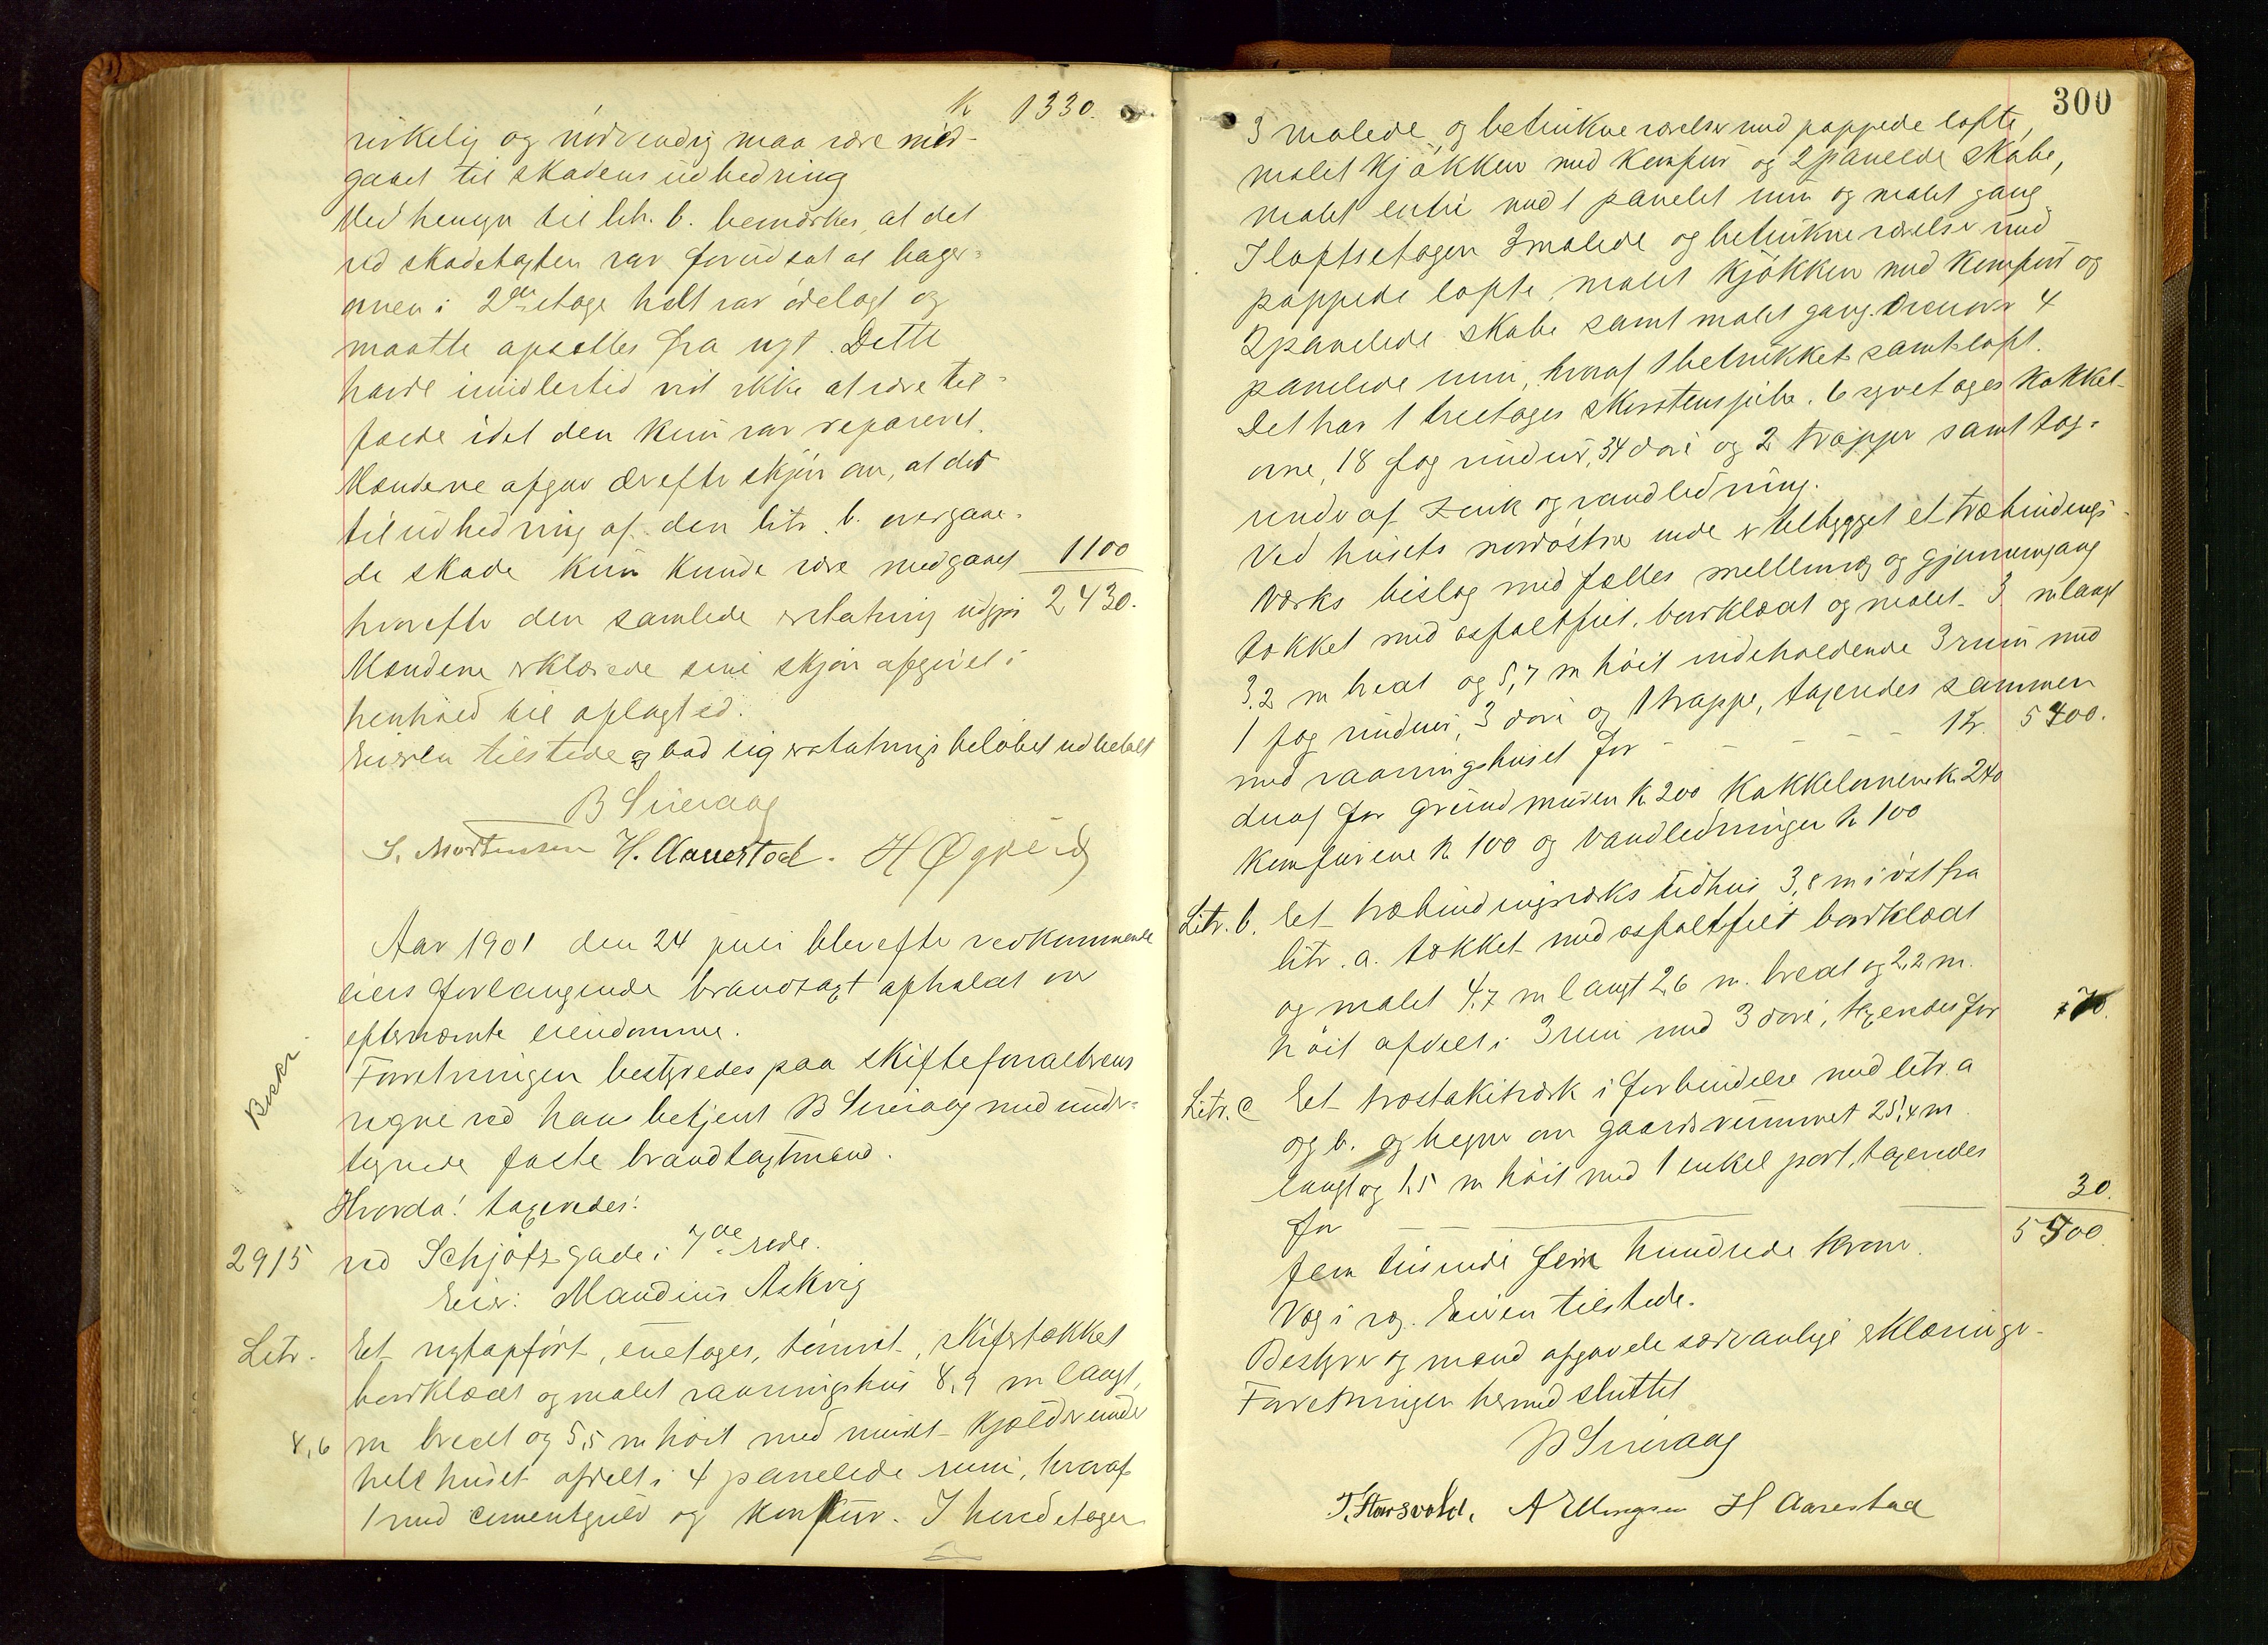 K 1330.
virkelig og nødvendig maa være med-
gaaet til skadens udbedring
Med hensyn til litr. b. bemærkes, at det
ved skadetaxten var forudsat at bager-
ovnen i 2den etage helt var ødelagt og
maatte opsættes fra nyt. Dette
havde imidlertid vist ikke at være til-
fælde idet den kun var repareret.
Mændene afgav derefter skjøn om, at der
til udbedring af den litr. b. overgaae-
de skade kun kunde være medgaaet 1100
hvorefter den samlede erstatning udgjør 2430.
Mændene erklærede sine skjøn afgivet i
henhold til aflagt ed.
Eieren tilstede og bad sig erstatningsbeløbet udbetalt
B Sirevaag
S. Mortensen H. Aarestad. H Øgreid
Aar 1901 den 24 juli blev efter vedkommende
eiers forlangende brandtaxt afholdt over
efternævnte eiendomme.
Forretningen bestyredes paa skifteforvalterens
vegne ved hans betjent B Sirevaag med under-
tegnede faste brandtaxtmænd.
Hvorda! taxeredes:
Beskr.
2915 ved Schjøtzgade i 7de rode.
Eier: Maudius Askvig
Litr. Et nyt opført, enetages, tømret, skifertækket
bordklædt og malet vaaningshus 8,9 m langt,
8,6 m bredt og 5,5 m høit med muret kjælder under
hele huset afdelt i 4 panelede rum, hvoraf
1 med cementgulv og komfur. I hovedetagen
300
3 malede og betrukne værelser med pappede lofte,
malet kjøkken med komfur og 2 panelede skabe,
malet entré med 1 panelet rum og malet gang.
I loftsetagen 3 malede og betrukne værelser med
pappede lofte, malet kjøkken med komfur og
2 panelede skabe samt malet gang. Derover 4
panelede rum, hvoraf 1 betrukket samt loft.
Det har 1 treetages skorstenspibe. 6 nyetages kakkel-
ovne, 18 fag vinduer, 34 døre og 2 trapper samt tag-
render af zink og vandledning.
Ved husets nordøstre ende er tilbygget et træbindings-
værks bislag med fælles mellemvæg og gjennemgang
tækket med asfaltfilt, bordklædt og malet 3 m langt
3,2 m bredt og 5,7 m høit indeholdende 3 rum med
1 fag vinduer, 3 døre og 1 trappe, taxeredes sammen
med vaaningshuset for - - - - - - kr. 5400.
deraf for grundmuren kr 200 kakkelovnene kr. 240
komfurene kr 100 og vandledningen kr 100
Litr. b. Et træbindingsværks udhus 3,8 m i øst fra
litr. a. tækket med asfaltfilt bordklædt
og malet 4,7 m langt 2,6 m. bredt og 2,2 m.
høit afdelt i 3 rum med 3 døre, taxeredes for 70.
Litr. c Et træstakitværk i forbindelse med litr. a
og b. og hegner om gaardsrummet 25,4 m
langt og 1,5 m høit med 1 enkel port, taxeredes
for 30.
5500.
fem tusinde fem hundrede kroner.
Væg i væg. Eieren tilstede.
Bestyrer og mænd afgav de sædvanlige erklæringer.
Forretningen hermed sluttet
B Sirevaag
T. Horsvold. A Ellingsen H Aarestad